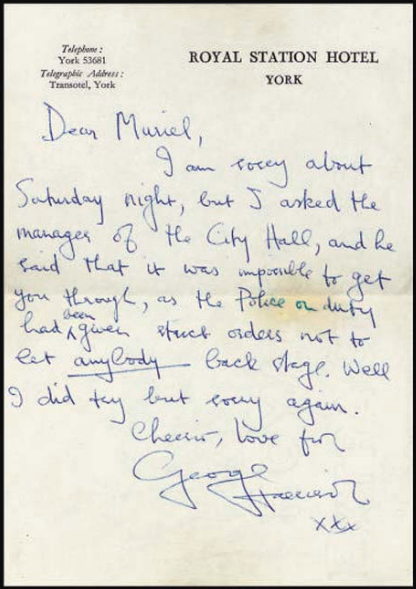 Telephone:
York 53681
Telegraphic Address:
Transotel, York
ROYAL STATION HOTEL
YORK
Dear Muriel,
I am sorry about
Saturday night, but I asked the
manager of the City Hall, and he
said that it was impossible to get
you through, as the Police on duty
had been given strict orders not to
let anybody back stage. Well
I did try but sorry again.
Cheerio, love from
George
Harrison
xxx